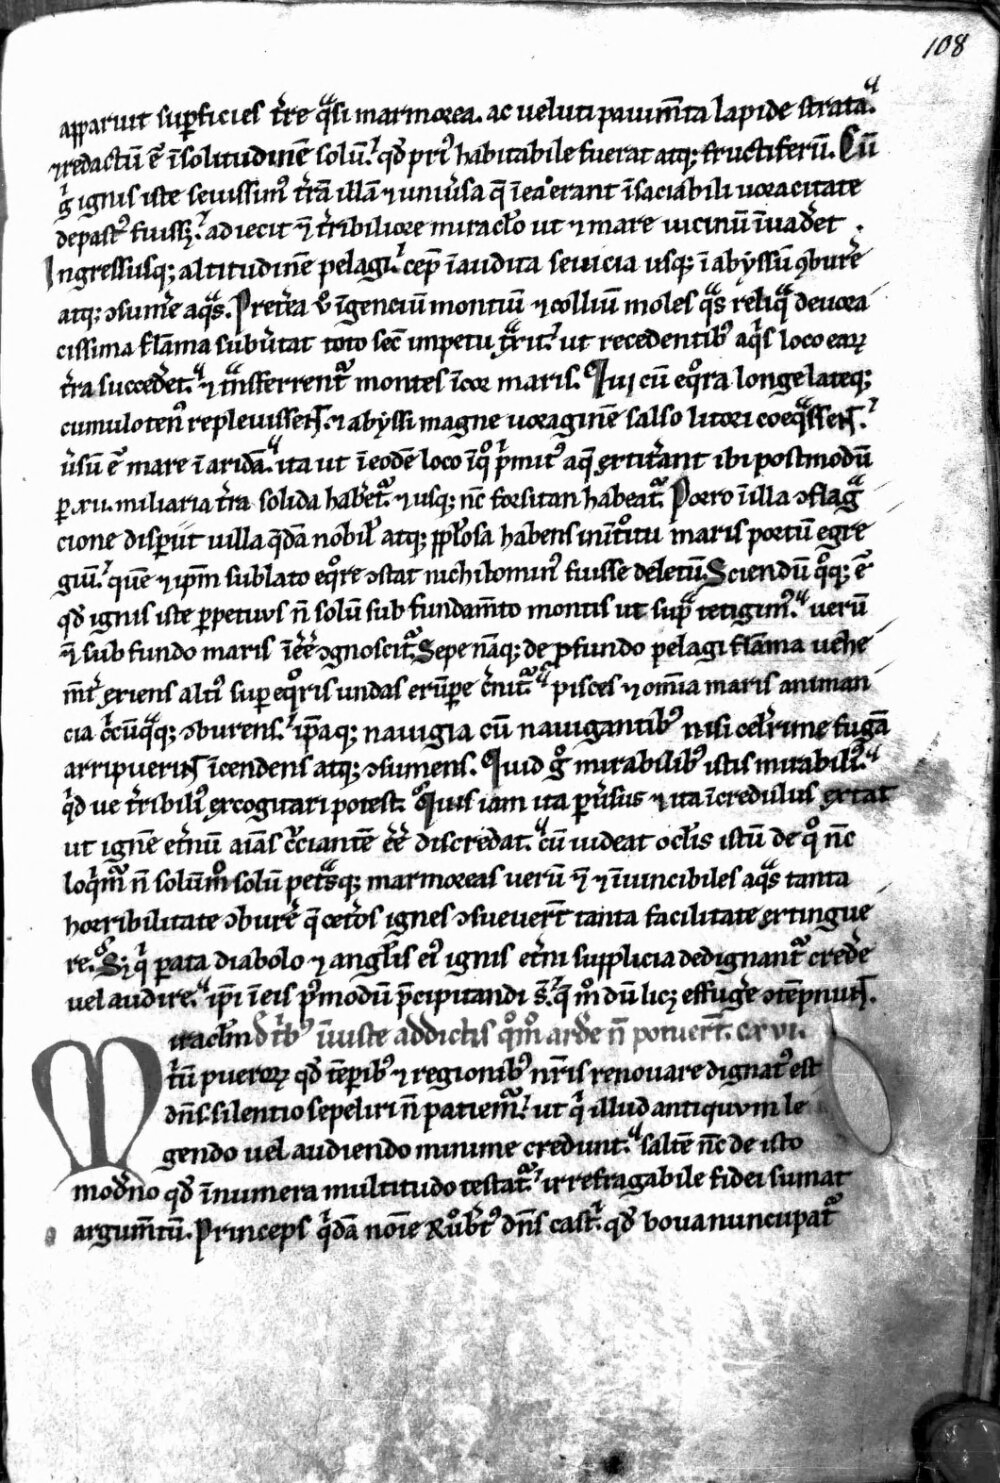 108
apparuit suꝑficies t̄re q̄si marmorea. ac veluti pauim̄ta lapide strata.
⁊ redactū ē ī solitudinē solū. qd̄ pri᷒ habitabile fuerat atq; fructiferū. Cū
g̊ ignis iste seuissim᷒ t̄rā illā ⁊ uniūsa q̄ ī ea erant īsaciabili uoracitate
depast᷒ fuiss;. adiecit ⁊ t̄ribiliore miraclo ut ⁊ mare uicinū īuadet.
Ingressusq; altitudinē pelagi. cep̄ īaudita seuicia usq; ī abyssū ↄburē
atq; ↄsumē aq̄s. Pretēa ū īgenciū montiū ⁊ colliū moles q̄s reliq̄ deuora
cissima flāma subūtat toto sec̄ impetu t̄xit. ut recedentib᷒ aq̄s loco eaꝝ
t̄ra succedet. ⁊ t̄nsferrent᷑ montes ī cor maris. Qui cū eq̄ra longe lateq;
cumuloten᷒ repleuissent. ⁊ abyssi magne uoraginē salso litori coeq̄ssent.
ūsū ē mare ī aridā. ita ut ī eodē loco ī quo prim᷒ aq̄ extiterant ibi postmodū
ꝑ .xii. miliaria t̄ra solida habet᷑. ⁊ usq; nc̄ forsitan habeat᷑. Porro ī illa ↄflag̃
cione disꝑiit uilla q̄dā nobil̄ atq; ppl̄osa habens ī introitu maris portū egre
giū. quē ⁊ ip̄m sublato eq̄re ↄstat nichilomin᷒ fuisse deletū. Sciendū q̊q; ē
qd̄ ignis iste ꝑpetuus n̄ solū sub fundam̄to montis ut sup̃ tetigim᷒. uerū
⁊ sub fundo maris īeē ↄgnoscit᷑. Sepe nāq; de ꝓfundo pelagi flāma uehe
m̄t̄ exiens alti᷒ super eq̄ris undas erūpe c̄nit᷑. pisces ⁊ om̄ia maris animan
cia c̄cūq̄q; ↄburens. ip̄aq; nauigia cū nauigantib᷒ nisi cel̄rime fugā
arripuerint īcendens atq; ↄsumens. Quid g̊ mirabilib᷒ istis mirabili᷒.
q̄d ue t̄ribili᷒ excogitari potest. Quis iam ita ꝑūsus ⁊ ita īcredulus extat
ut ignē et̄nū aīas c̄ciantē eē discredat. cū uideat ocl̄is istū de q̊ nc̄
loq̄m᷒ n̄ solūm̊ solū petasq; marmoreas uerū ⁊ ⁊ īuincibiles aq̄s tanta
horribilitate ↄburē q̄ cet̄os ignes ↄsueuert̄ tanta facilitate extingue
re. S; q̄ ꝑata diabolo ⁊ angl̄is ei᷒ ignis et̄ni supplicia dedignant᷑ credē
uel audire. ip̄i ī eis p᷒modū p̄cipitandi s̄. q̄ m̊ dū lic; effugē ↄtēpnūt.
Miraclm̄ d̄ trib᷒ īiuste addictis q̊m̊ ardē n̄ potuert̄. cxvi.
t̄ū pueroꝝ qd̄ tēporib᷒ ⁊ regionib᷒ nr̄is renouare dignat᷒ est
dn̄s silentio sepeliri n̄ patiem᷑. ut q̄ illud antiquum le
gendo uel audiendo minime credunt. saltē nc̄ de isto
modno qd̄ īnumera multitudo testat᷑. irrefragabile fidei sumat
argum̄tū. Princeps q̄dā noīe Rob̄t᷒ dn̄s castr̄. qd̄ boua nuncupat᷑